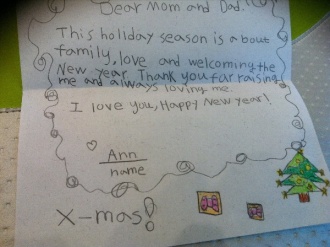 Dear Mom and Dad!
This holiday season is about
family, love and welcoming the
New year. Thank you fur raising
me and always loving me.
I love you, Happy New year!
Ann
name
X-mas!